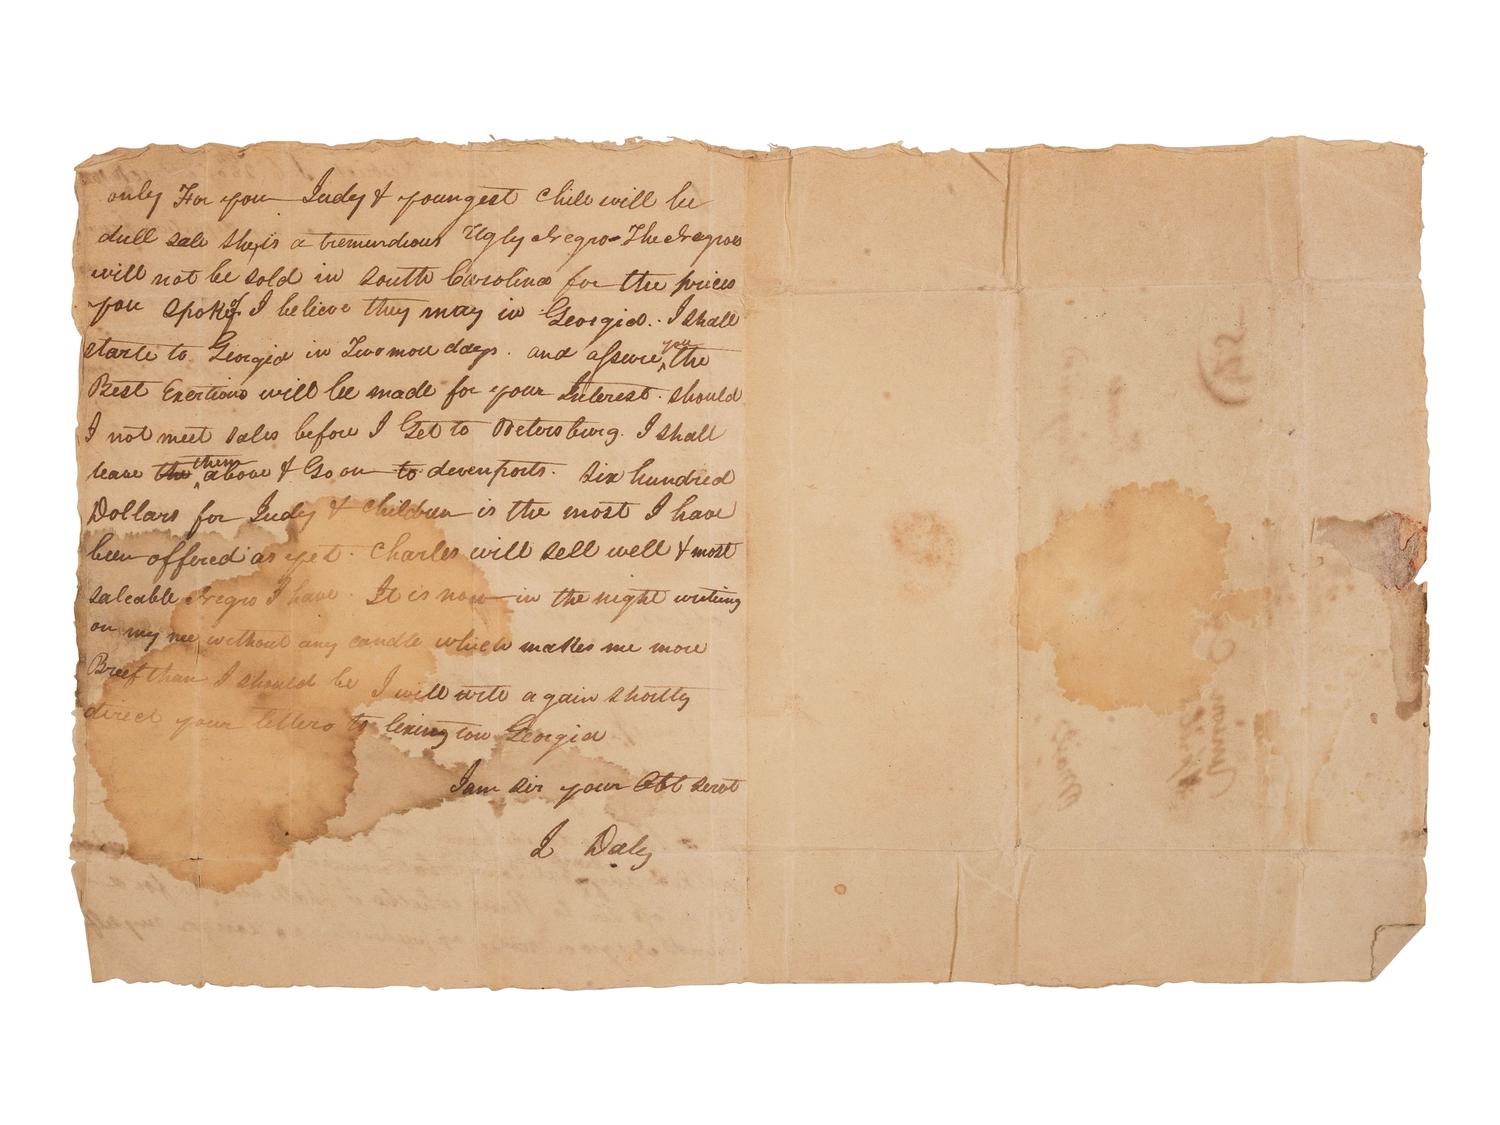 only For you Judy & youngest Chile will be
dull sale she is a tremendious Ugly Negro - The Negroes
will not be sold in South Carolina for the prices
you spoke of I believe they may in Georgia. I shall
starte to Georgia in Two more days. and assure you the
Best Exertions will be made for your Interest. should
I not meet sales before I Get to Petersburg. I shall
leave the them above & Go on to devenports. six hundred
Dollars for Judy & Children is the most I have
been offered as yet. Charles will sell well & most
saleable Negro I have. It is now in the night writing
on my nee without any candle which makes me more
Breef than I should be I will write again shortly
direct your letters to lexington Georgia
I am sir your Obt servt
J Daly